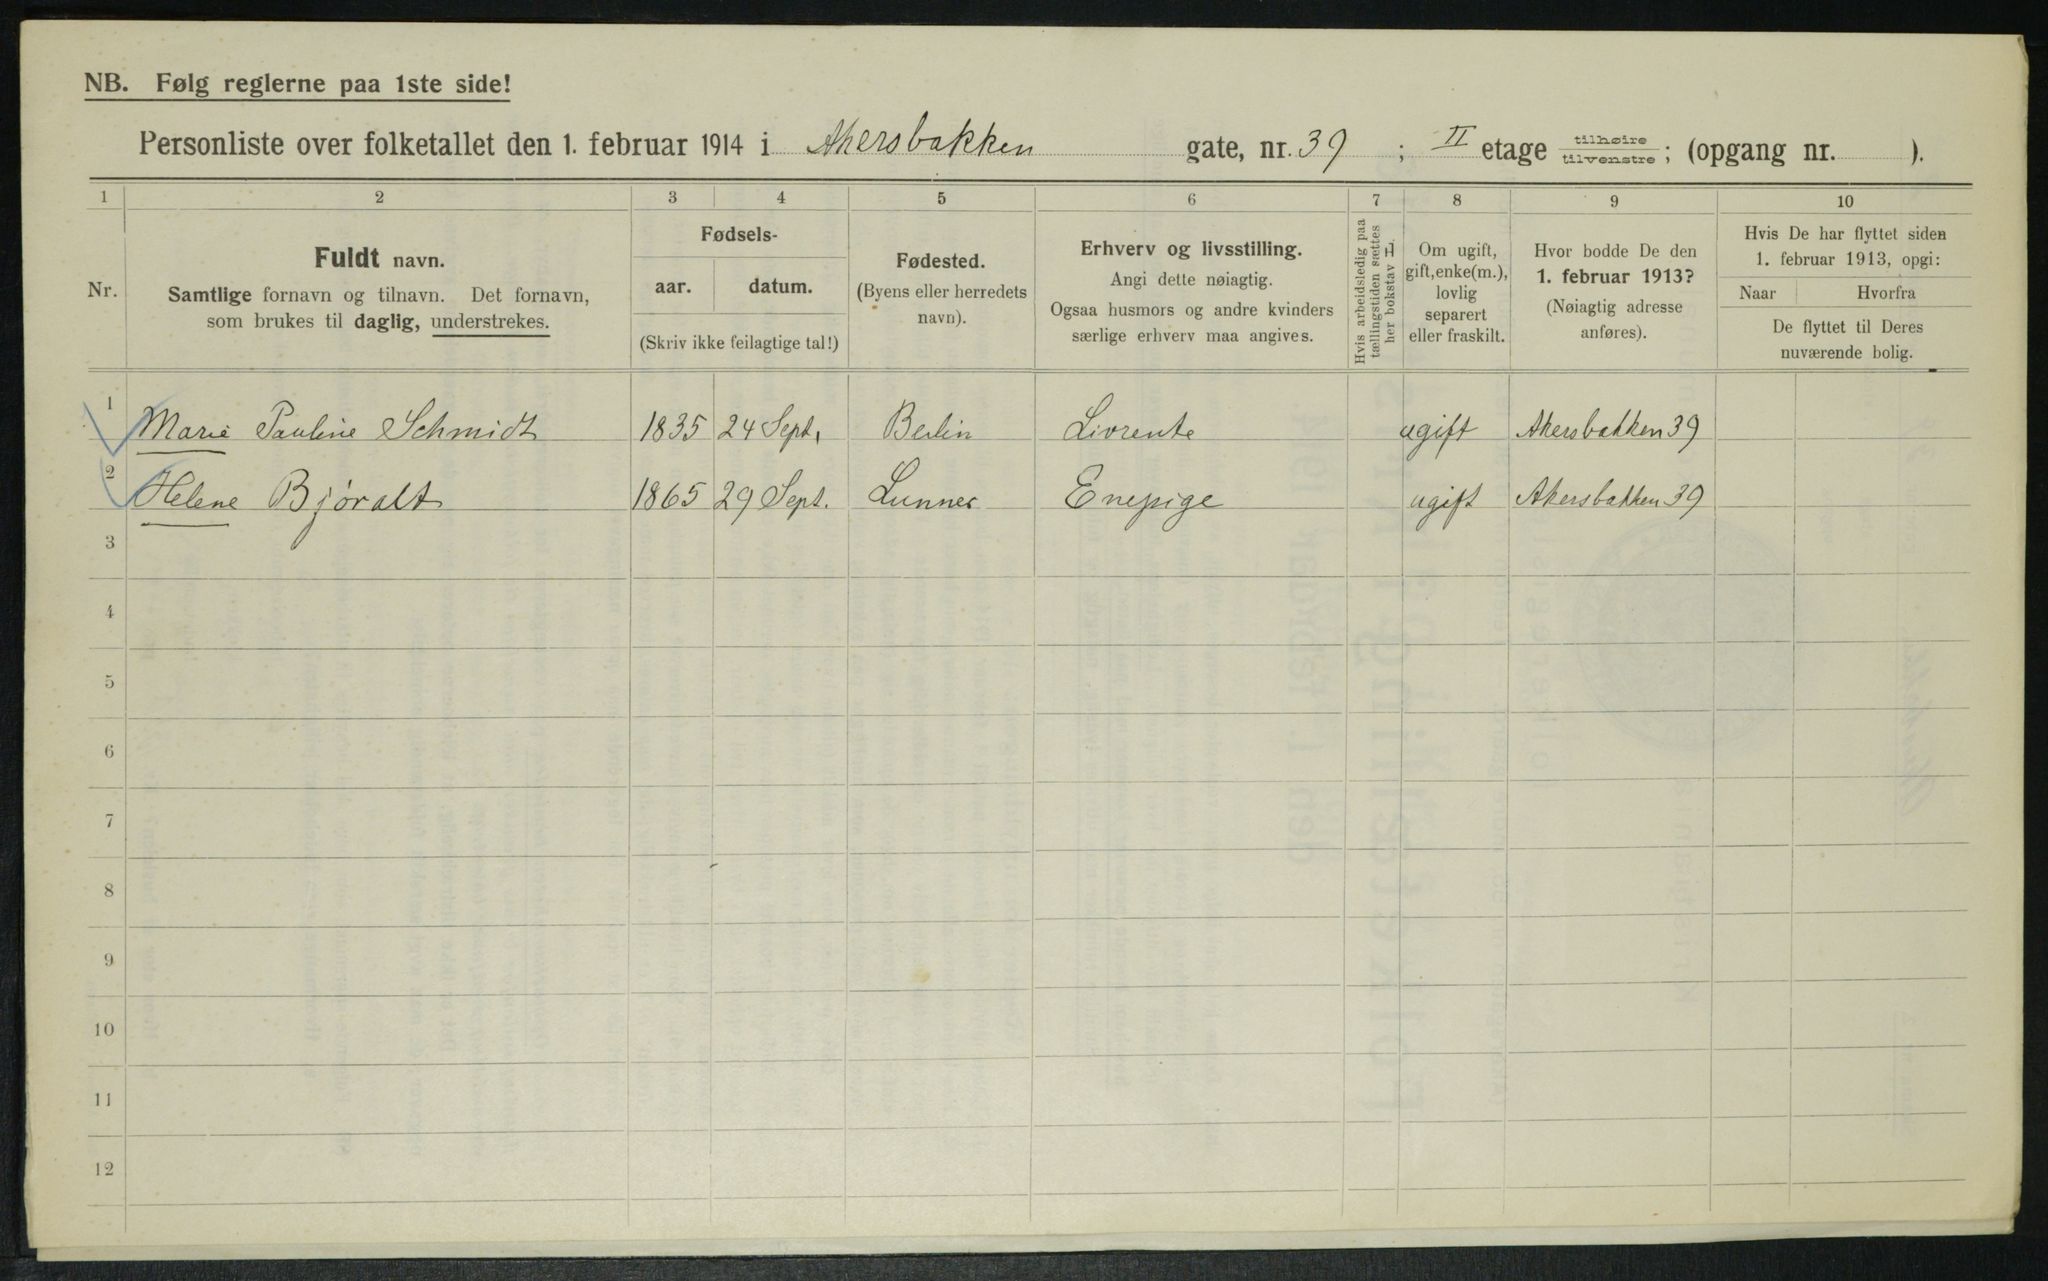 NB. Følg reglerne paa 1ste side!
Personliste over folketallet den 1. februar 1914 i Akersbakken gate, nr. 39 ; II etage tilhøire tilvenstre ; (opgang nr. ).
1 2 3 4 5 6 7 8 9 10
Nr.
Fuldt navn.
Samtlige fornavn og tilnavn. Det fornavn,
som brukes til daglig, understrekes.
Fødsels-
aar. datum.
(Skriv ikke feilagtige tal!)
Fødested.
(Byens eller herredets
navn).
Erhverv og livsstilling.
Angi dette nøiagtig.
Ogsaa husmors og andre kvinders
særlige erhverv maa angives.
Hvis arbeidsledig paa
tællingstiden sættes
her bokstav L.
Om ugift,
gift, enke(m.),
lovlig
separert
eller fraskilt.
Hvor bodde De den
1. februar 1913?
(Nøiagtig adresse
anføres).
Hvis De har flyttet siden
1. februar 1913, opgi:
Naar Hvorfra
De flyttet til Deres
nuværende bolig.
1 Marie Pauline Schmidt 1835 24 Sept. Berlin Livrente ugift Akersbakken 39
2 Helene Bjøralt 1865 29 Sept. Lunner Enepige ugift Akersbakken 39
3
4
5
6
7
8
9
10
11
12